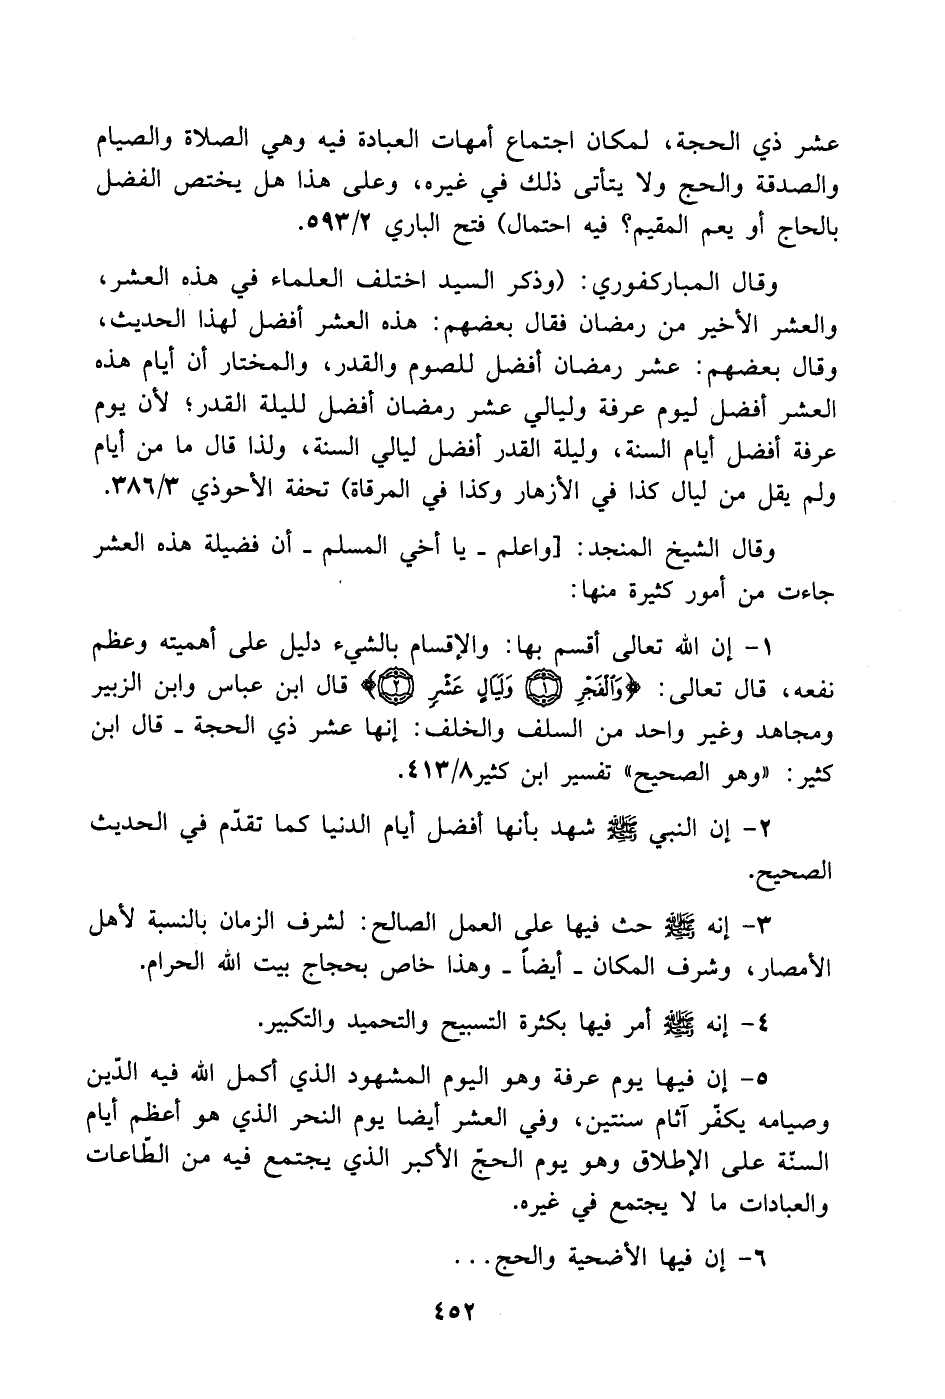 عشر ذي الحجة، لمكان اجتماع أمهات العبادة فيه وهي الصلاة والصيام
والصدقة والحج ولا يتأتى ذلك في غيره، وعلى هذا هل يختص الفضل
بالحاج أو يعم المقيم؟ فيه احتمال) فتح الباري ٥٩٣/٢.
وقال المباركفوري: (وذكر السيد اختلف العلماء في هذه العشر،
والعشر الأخير من رمضان فقال بعضهم: هذه العشر أفضل لهذا الحديث،
وقال بعضهم: عشر رمضان أفضل للصوم والقدر، والمختار أن أيام هذه
العشر أفضل ليوم عرفة وليالي عشر رمضان أفضل لليلة القدر؛ لأن يوم
عرفة أفضل أيام السنة، وليلة القدر أفضل ليالي السنة، ولذا قال ما من أيام
ولم يقل من ليال كذا في الأزهار وكذا في المرقاة) تحفة الأحوذي ٣٨٦/٣.
وقال الشيخ المنجد: [واعلم ـ يا أخي المسلم ـ أن فضيلة هذه العشر
جاءت من أمور كثيرة منها:
١- إن الله تعالى أقسم بها: والإقسام بالشيء دليل على أهميته وعظم
نفعه، قال تعالى: ﴿وَٱلۡفَجۡرِ ۝١ وَلَيَالٍ عَشۡرٖ ۝٢﴾ قال ابن عباس وابن الزبير
ومجاهد وغير واحد من السلف والخلف: إنها عشر ذي الحجة ـ قال ابن
كثير: «وهو الصحيح» تفسير ابن كثير٤١٣/٨.
٢- إن النبي ﷺ شهد بأنها أفضل أيام الدنيا كما تقدّم في الحديث
الصحيح.
٣- إنه ﷺ حث فيها على العمل الصالح: لشرف الزمان بالنسبة لأهل
الأمصار، وشرف المكان ـ أيضاً ـ وهذا خاص بحجاج بيت الله الحرام.
٤- إنه ﷺ أمر فيها بكثرة التسبيح والتحميد والتكبير.
٥- إن فيها يوم عرفة وهو اليوم المشهود الذي أكمل الله فيه الدّين
وصيامه يكفّر آثام سنتين، وفي العشر أيضا يوم النحر الذي هو أعظم أيام
السنّة على الإطلاق وهو يوم الحجّ الأكبر الذي يجتمع فيه من الطّاعات
والعبادات ما لا يجتمع في غيره.
٦- إن فيها الأضحية والحج...
٤٥٢